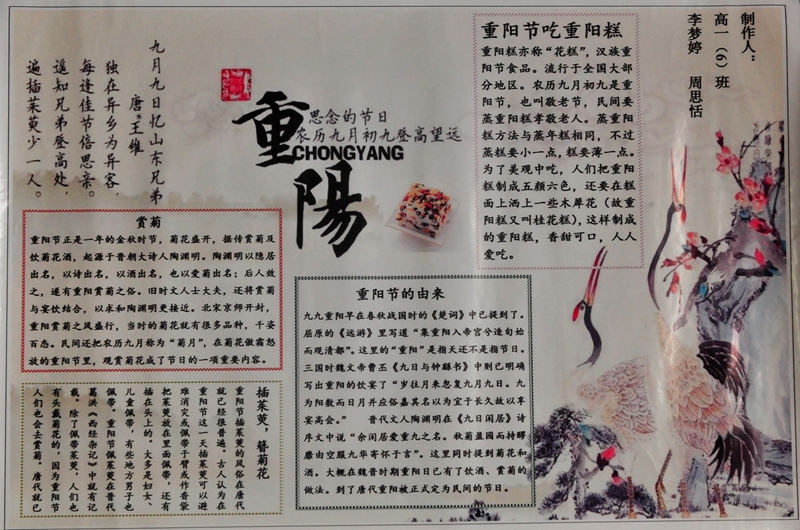 九月九日忆山东兄弟
唐·王维
独在异乡为异客，
每逢佳节倍思亲。
遥知兄弟登高处，
遍插茱萸少一人。
重陽
思念的节日
农历九月初九登高望远
CHONGYANG
重阳节吃重阳糕
重阳糕亦称“花糕”，汉族重
阳节食品。流行于全国大部
分地区。农历九月初九是重
阳节，也叫敬老节，民间要
蒸重阳糕孝敬老人。蒸重阳
糕方法与蒸年糕相同，不过
蒸糕要小一点，糕要薄一点。
为了美观中吃，人们把重阳
糕制成五颜六色，还要在糕
面上洒上一些木犀花（故重
阳糕又叫桂花糕），这样制成
的重阳糕，香甜可口，人人
爱吃。
制作人：
高一（6）班
李梦婷 周思恬
赏菊
重阳节正是一年的金秋时节，菊花盛开，据传赏菊及
饮菊花酒，起源于晋朝大诗人陶渊明。陶渊明以隐居
出名，以诗出名，以酒出名，也以爱菊出名；后人效
之，遂有重阳赏菊之俗。旧时文人士大夫，还将赏菊
与宴饮结合，以求和陶渊明更接近。北宋京师开封，
重阳赏菊之风盛行，当时的菊花就有很多品种，千姿
百态。民间还把农历九月称为“菊月”，在菊花傲霜怒
放的重阳节里，观赏菊花成了节日的一项重要内容。
重阳节的由来
九九重阳早在春秋战国时的《楚词》中已提到了。
屈原的《远游》里写道“集重阳入帝宫兮造旬始
而观清都”。这里的“重阳”是指天还不是指节日。
三国时魏文帝曹丕《九日与钟繇书》中则已明确
写出重阳的饮宴了“岁往月来忽复九月九日。九
为阳数而日月并应俗嘉其名以为宜于长久故以享
宴高会。” 晋代文人陶渊明在《九日闲居》诗
序文中说“余闲居爱重九之名。秋菊盈园而持醪
靡由空服九华寄怀于言”。这里同时提到菊花和
酒。大概在魏晋时期重阳日已有了饮酒、赏菊的
做法。到了唐代重阳被正式定为民间的节日。
插茱萸，簪菊花
重阳节插茱萸的风俗在唐代
就已经很普遍。古人认为在
重阳节这一天插茱萸可以避
难消灾或佩带于臂或作香袋
把茱萸放在里面佩带，还有
插在头上的。大多是妇女、
儿童佩带，有些地方男子也
佩带。重阳节佩茱萸在晋代
葛洪《西经杂记》中就有记
载。除了佩带茱萸，人们也
有头戴菊花的。因为重阳节
人们也会去赏菊。唐代就已